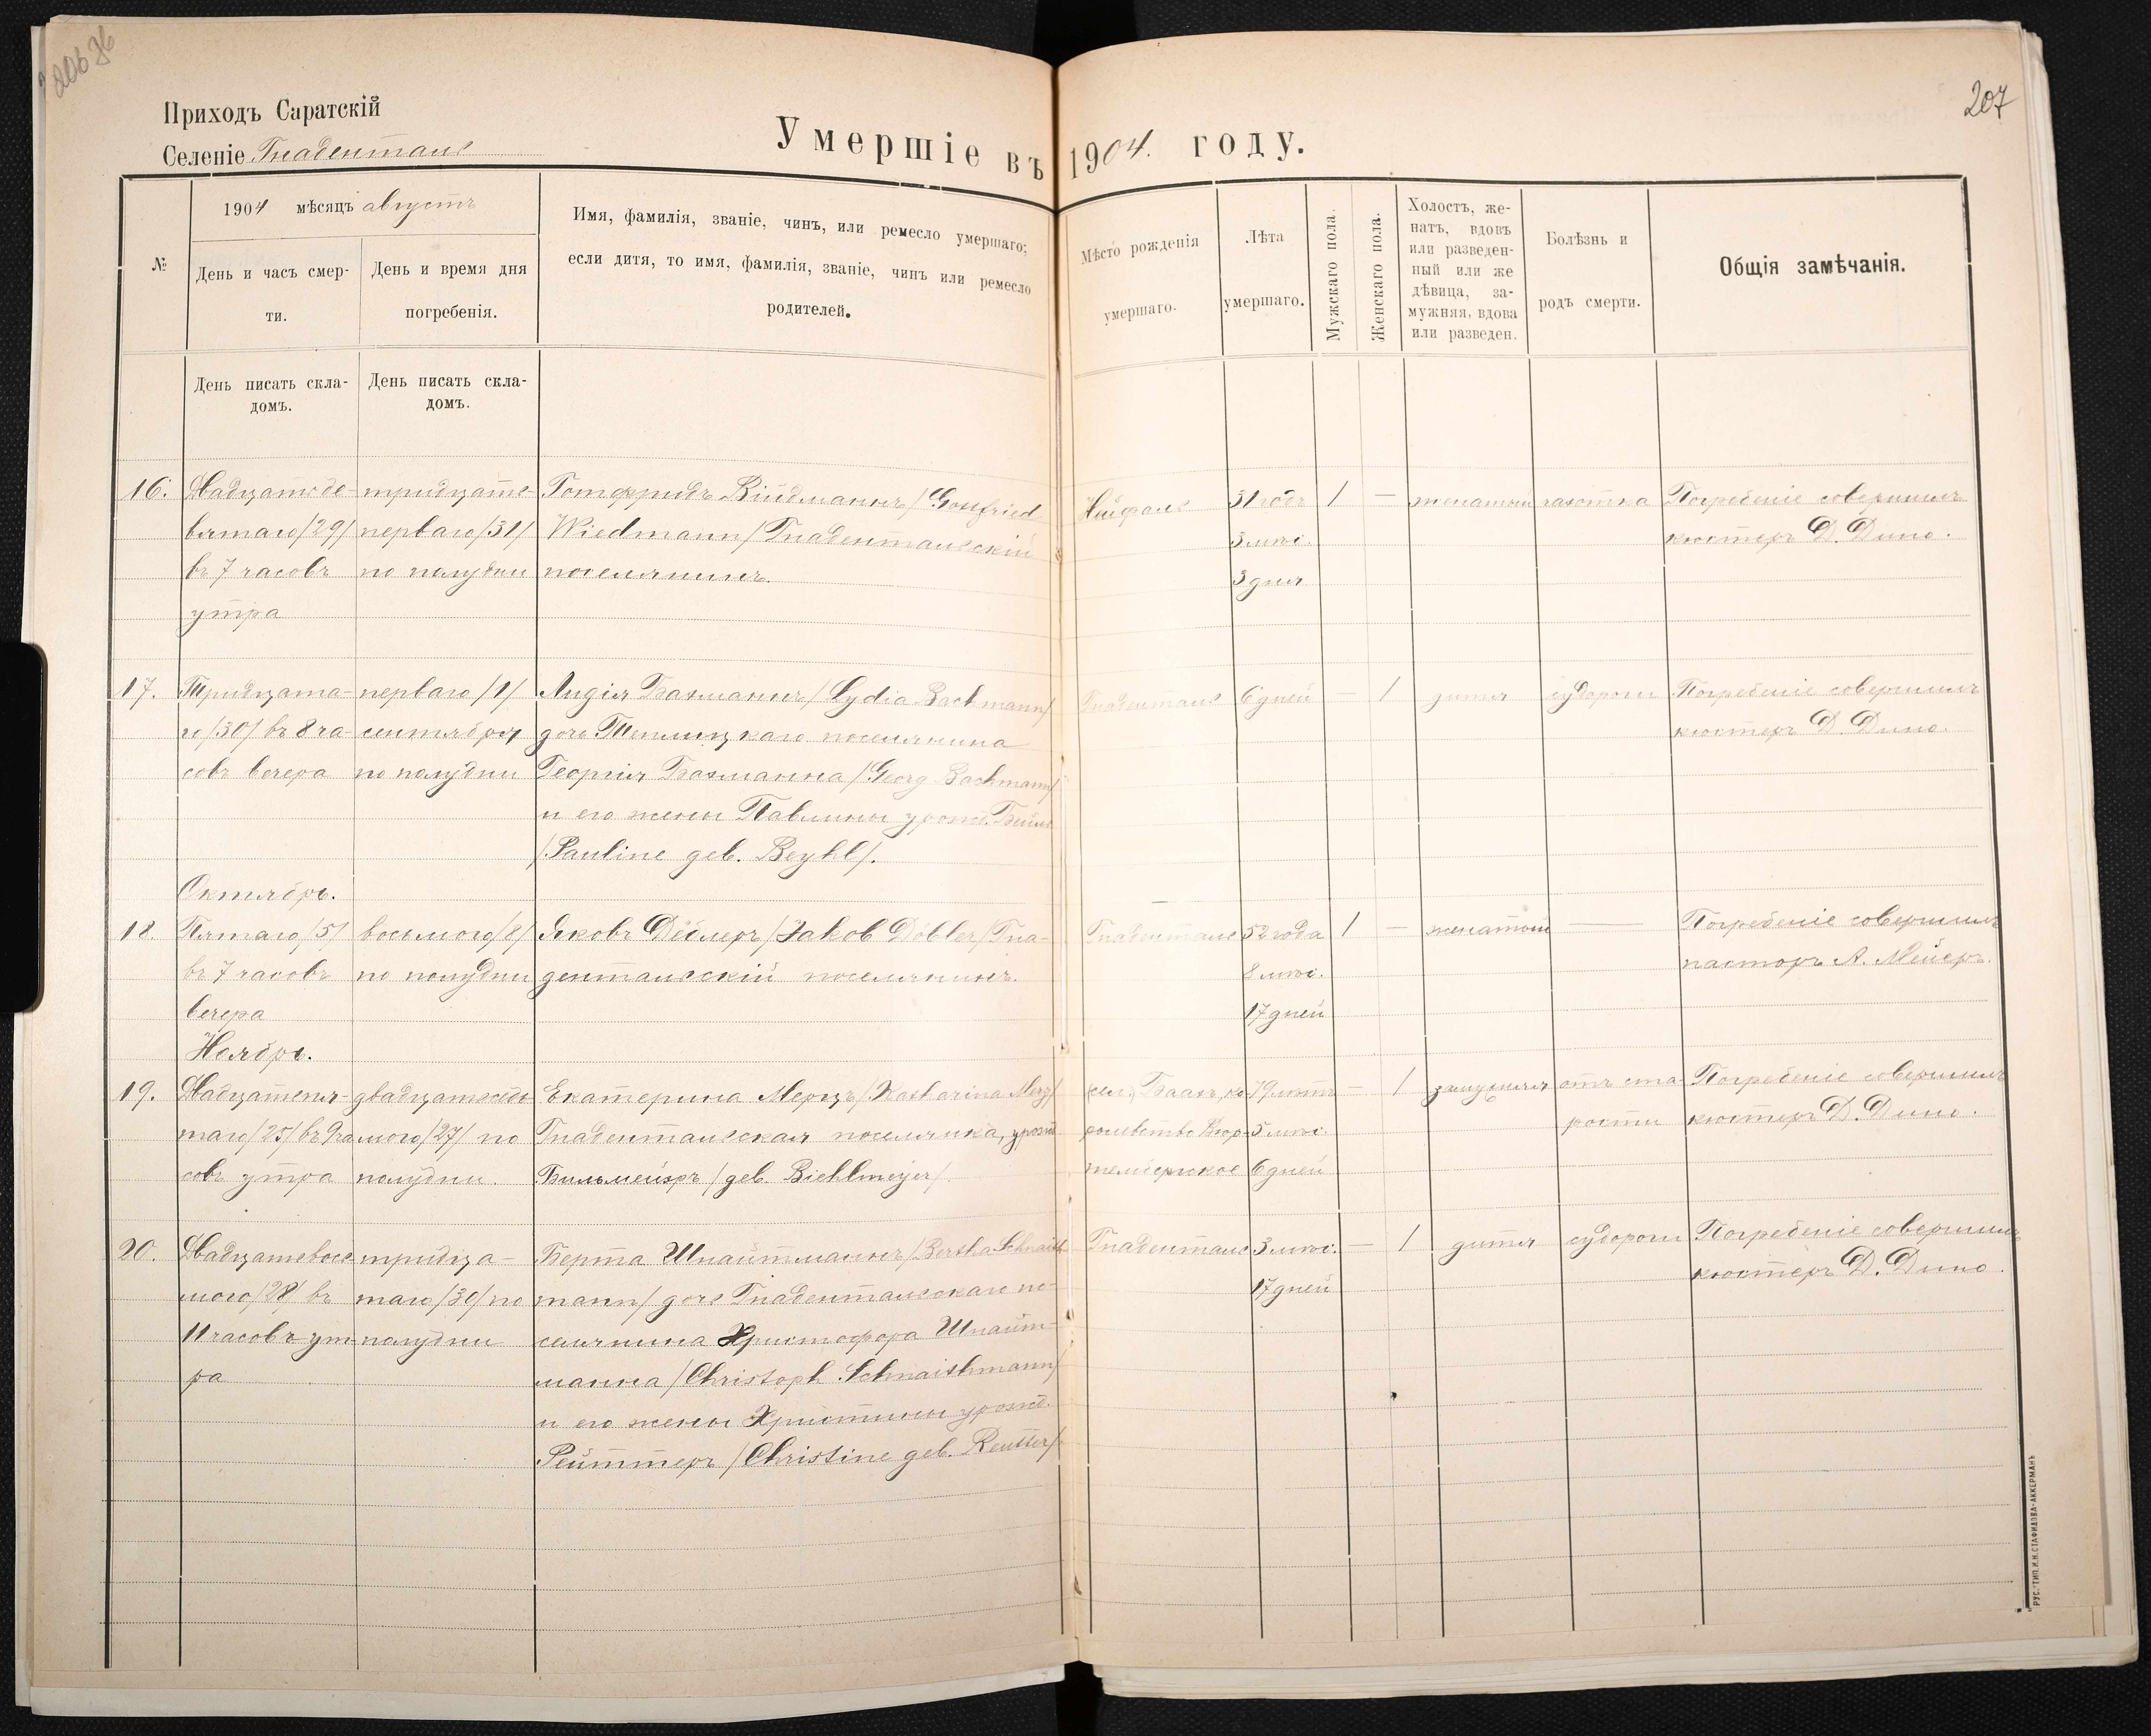 207
Приходъ Саратскій
Селеніе Гнаденталь
Умершіе въ 1904. году.
№
1904 мѣсяцъ августъ
День и часъ смер-
ти.
День и время дня
погребенія.
Имя, фамилія, званіе, чинъ, или ремесло умершаго;
если дитя, то имя, фамилія, званіе, чинъ или ремесло
родителей.
Мѣсто рожденія
умершаго.
Лѣта
умершаго.
Мужскаго пола.
Женскаго пола.
Холостъ, же-
натъ, вдовъ
или разведен-
ный или же
дѣвица, за-
мужняя, вдова
или разведен.
Болѣзнь и
родъ смерти.
Общія замѣчанія.
День писать скла-
домъ.
День писать скла-
домъ.
16.
Двадцатьде-
вятаго /29/
въ 7 часовъ
утра
тридцать-
перваго /31/
по полудни
Готфридъ Виідманнъ /Gottfried
Wiedmann/ Гнадентальскій
поселянинъ.
31 годъ
3 мѣс.
3 дня
1
—
женатый
чахотка
Погребеніе совершилъ
кюстеръ Д. Дино.
17.
Тридцата-
го /30/ въ 8 ча-
совъ вечера
перваго /1/
сентября
по полудни
Лидія Бахманнъ /Lydia Bachmann/
дочь Теплицкаго поселянина
Георгія Бахманна /Georg Bachmann/
и его жены Павлины урожд. Бейль
/Pauline geb. Beyhl/.
Гнаденталь
6 дней
1
дитя
судороги
Погребеніе совершилъ
кюстеръ Д. Дино.
Октябрь.
18
Пятаго /5/
въ 7 часовъ
вечера
восьмого /8/
по полудни
Яковъ Дёблеръ /Jakob Döbler/ Гна-
дентальскій поселянинъ.
Гнаденталь
52 года
8 мѣс.
17 дней
1
—
женатый
—
Погребеніе совершилъ
пасторъ А. Мейеръ.
Ноябрь.
19.
Двадцатьпя-
таго /25/ въ 9 ча-
совъ утра
двадцатьседь-
мого /27/ по
полудни.
Екатерина Мерцъ /Katharina Merz/
Гнадентальская поселянка, урожд.
Бильмейеръ /geb. Biehlmeyer/.
сел. Баахъ, ко-
ролевство Вюр-
тембергское
79 лѣтъ
5 мѣс.
6 дней
—
1
замужняя
отъ ста-
рости
Погребеніе совершилъ
кюстеръ Д. Дино.
20.
Двадцатьвось-
мого /28/ въ
11 часовъ ут-
ра
тридца-
таго /30/ по
полудни
Берта Шнайтманнъ /Bertha Schnaith-
mann/ дочь Гнадентальскаго по-
селянина Христофора Шнайт-
манна /Christoph Schnaithmann/
и его жены Христины урожд.
Рейттеръ /Christine geb. Reutter/.
Гнаденталь
3 мѣс.
17 дней
—
1
дитя
судороги
Погребеніе совершилъ
кюстеръ Д. Дино.
РУС. ТИП. И.Н. СТАФИДОВА-АККЕРМАНЪ